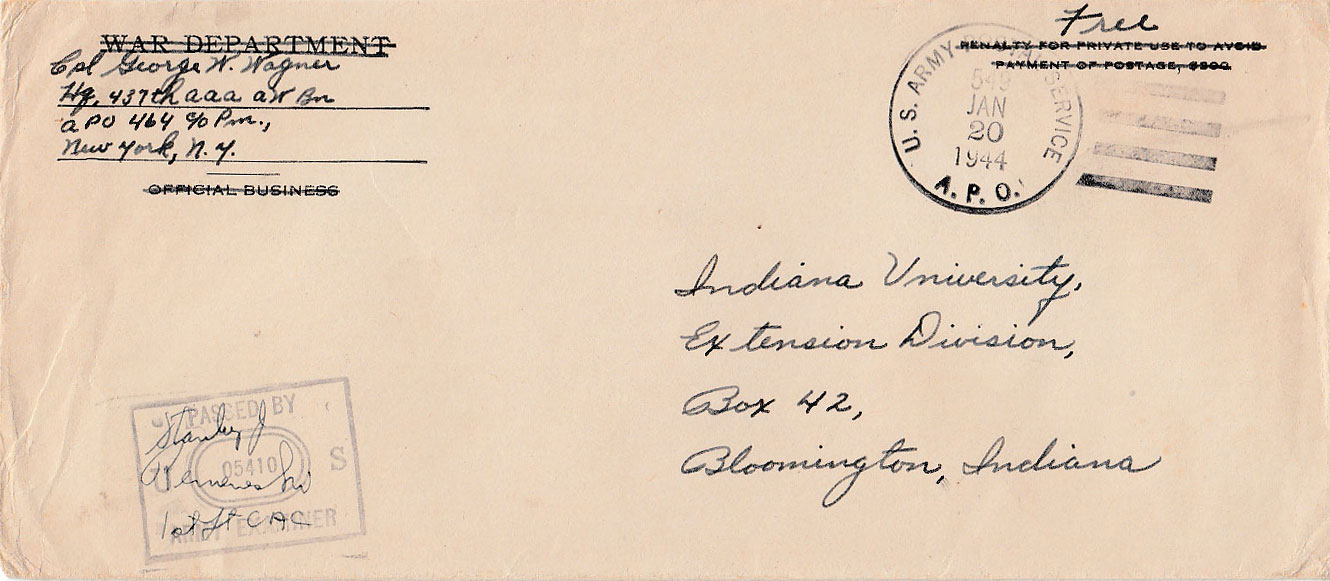 WAR DEPARTMENT
Cpl George W. Wagner
Hq. 437th aaa aw Bn
APO 464 c/o Pm.,
New York, N.Y.
OFFICIAL BUSINESS
Free
PENALTY FOR PRIVATE USE TO AVOID
PAYMENT OF POSTAGE, $300
U. S. ARMY POSTAL SERVICE
JAN
20
1944
A. P. O.
Indiana University,
Extension Division,
Box 42,
Bloomington, Indiana
PASSED BY
Stanley J
U S
05410
1st Lt CAC
ARMY EXAMINER